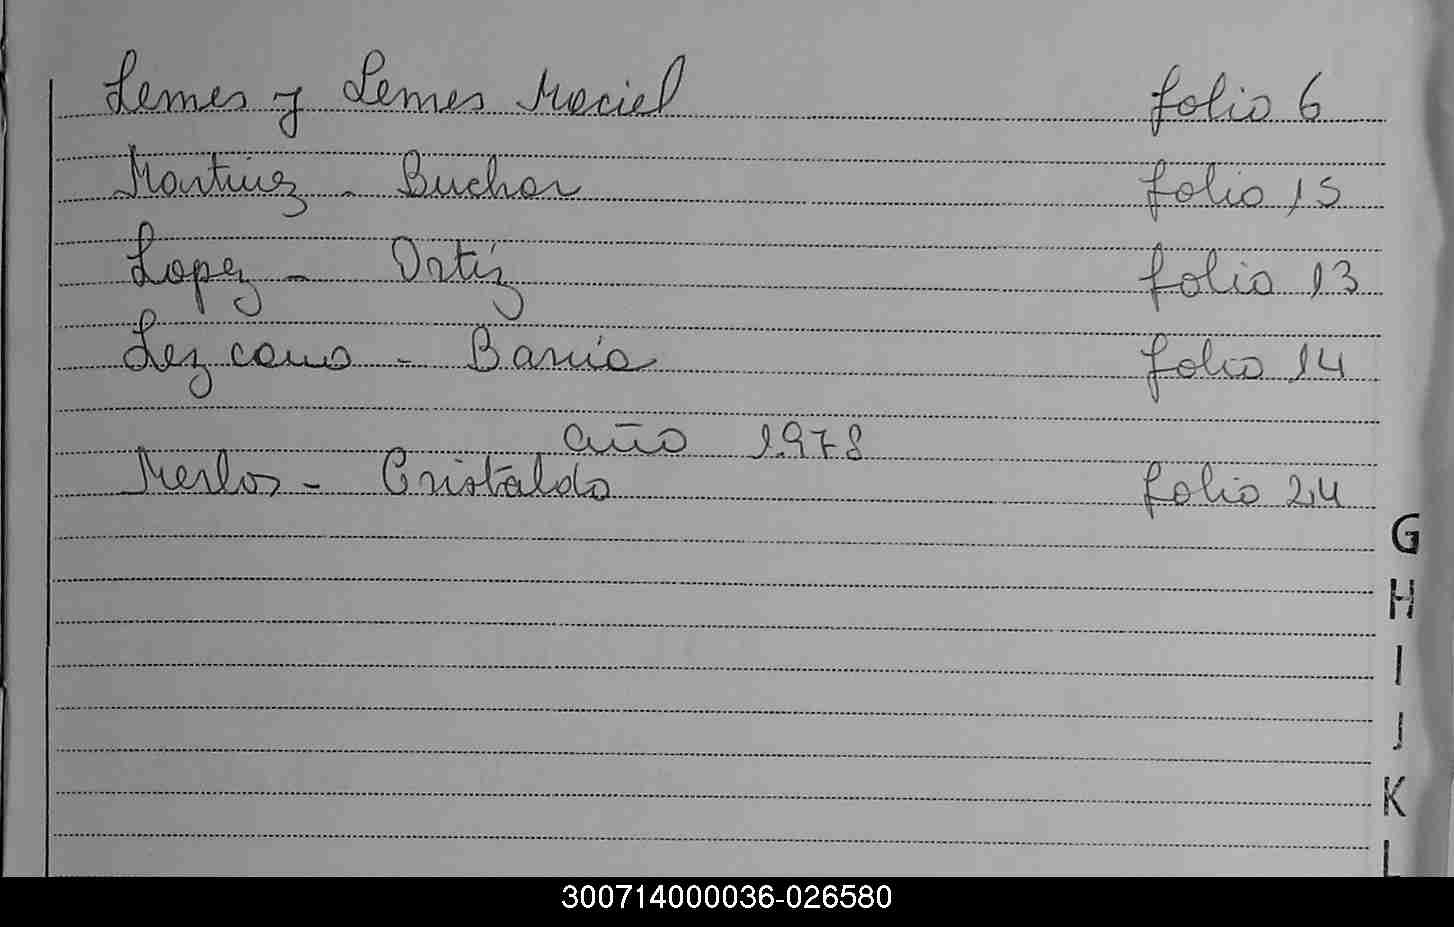 Lemes y Lemes Maciel folio 6
Martinez - Buchar folio 15
Lopez - Ortíz folio 13
Lezcano - folio 14
año 1978
Merlos - Cristaldo folio 24
G
H
I
J
K
L
300714000036-026580